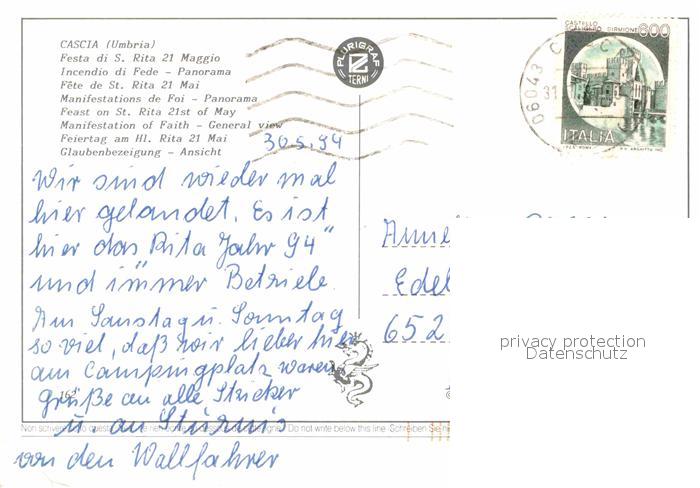 CASCIA (Umbria)
Festa di S. Rita 21 Maggio
Incendio di Fede - Panorama
Fête de St. Rita 21 Mai
Manifestations de Foi - Panorama
Feast on St. Rita 21st of May
Manifestation of Faith - General view
Feiertag am Hl. Rita 21 Mai
Glaubenbezeigung - Ansicht
PLURIGRAF
TERNI
CASTELLO
SCALIGERO SIRMIONE 600
ITALIA
06043 C
31
30.5.94
Wir sind wieder mal
hier gelandet. Es ist
hier das Rita Jahr 94"
und immer Betriebe.
Am Samstag u. Sonntag
so viel, daß wir lieber hier
am Campingplatz waren
Grüße an alle Stricker
u. an Sturmis
von den Wallfahrer
Anne
Edel
652
privacy protection
Datenschutz
Do not write below this line